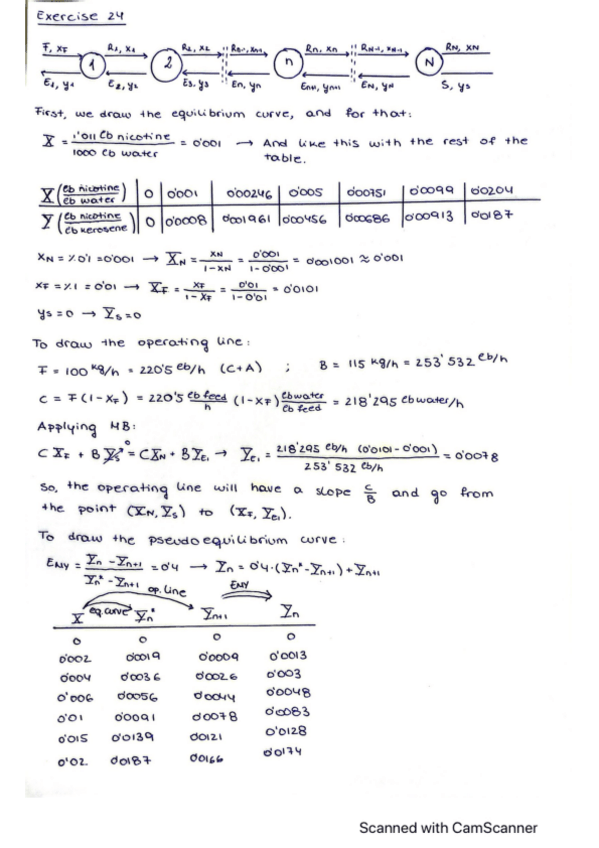 Exercise 24
F, xF R1, x1 R2, x2 Rn-1, xn-1 Rn, xn RN-1, xN-1 RN, xN
1 2 n N
E1, y1 E2, y2 E3, y3 En, yn En+1, yn+1 EN, yN S, ys
First, we draw the equilibrium curve, and for that:
X = 1'011 lb nicotine / 1000 lb water = 0'001 → And like this with the rest of the
table.
X (lb nicotine / lb water) 0 0'001 0'00246 0'005 0'00751 0'0099 0'0204
Y (lb nicotine / lb kerosene) 0 0'0008 0'001961 0'00456 0'00686 0'00913 0'0187
xN = %0'1 = 0'001 → XN = xN / 1-xN = 0'001 / 1-0'001 = 0'001001 ≈ 0'001
xF = %1 = 0'01 → XF = xF / 1-xF = 0'01 / 1-0'01 = 0'0101
ys = 0 → Ys = 0
To draw the operating line:
F = 100 kg/h = 220'5 lb/h (C+A) ; B = 115 kg/h = 253'532 lb/h
C = F(1-xF) = 220'5 lb feed / h (1-xF) lb water / lb feed = 218'295 lb water/h
Applying MB:
C XF + B Ys 0 = C XN + B YE1 → YE1 = 218'295 lb/h (0'0101 - 0'001) / 253'532 lb/h = 0'0078
So, the operating line will have a slope C/B and go from
the point (XN, Ys) to (XF, YE1).
To draw the pseudoequilibrium curve:
EMV = Yn - Yn+1 / Yn* - Yn+1 = 0'4 → Yn = 0'4·(Yn* - Yn+1) + Yn+1
op. line EMV
X eq.curve Yn* Yn+1 Yn
0 0 0 0
0'002 0'0019 0'0009 0'0013
0'004 0'0036 0'0026 0'003
0'006 0'0056 0'0044 0'0048
0'01 0'0091 0'0078 0'0083
0'015 0'0139 0'0121 0'0128
0'02 0'0187 0'0166 0'0174
Scanned with CamScanner